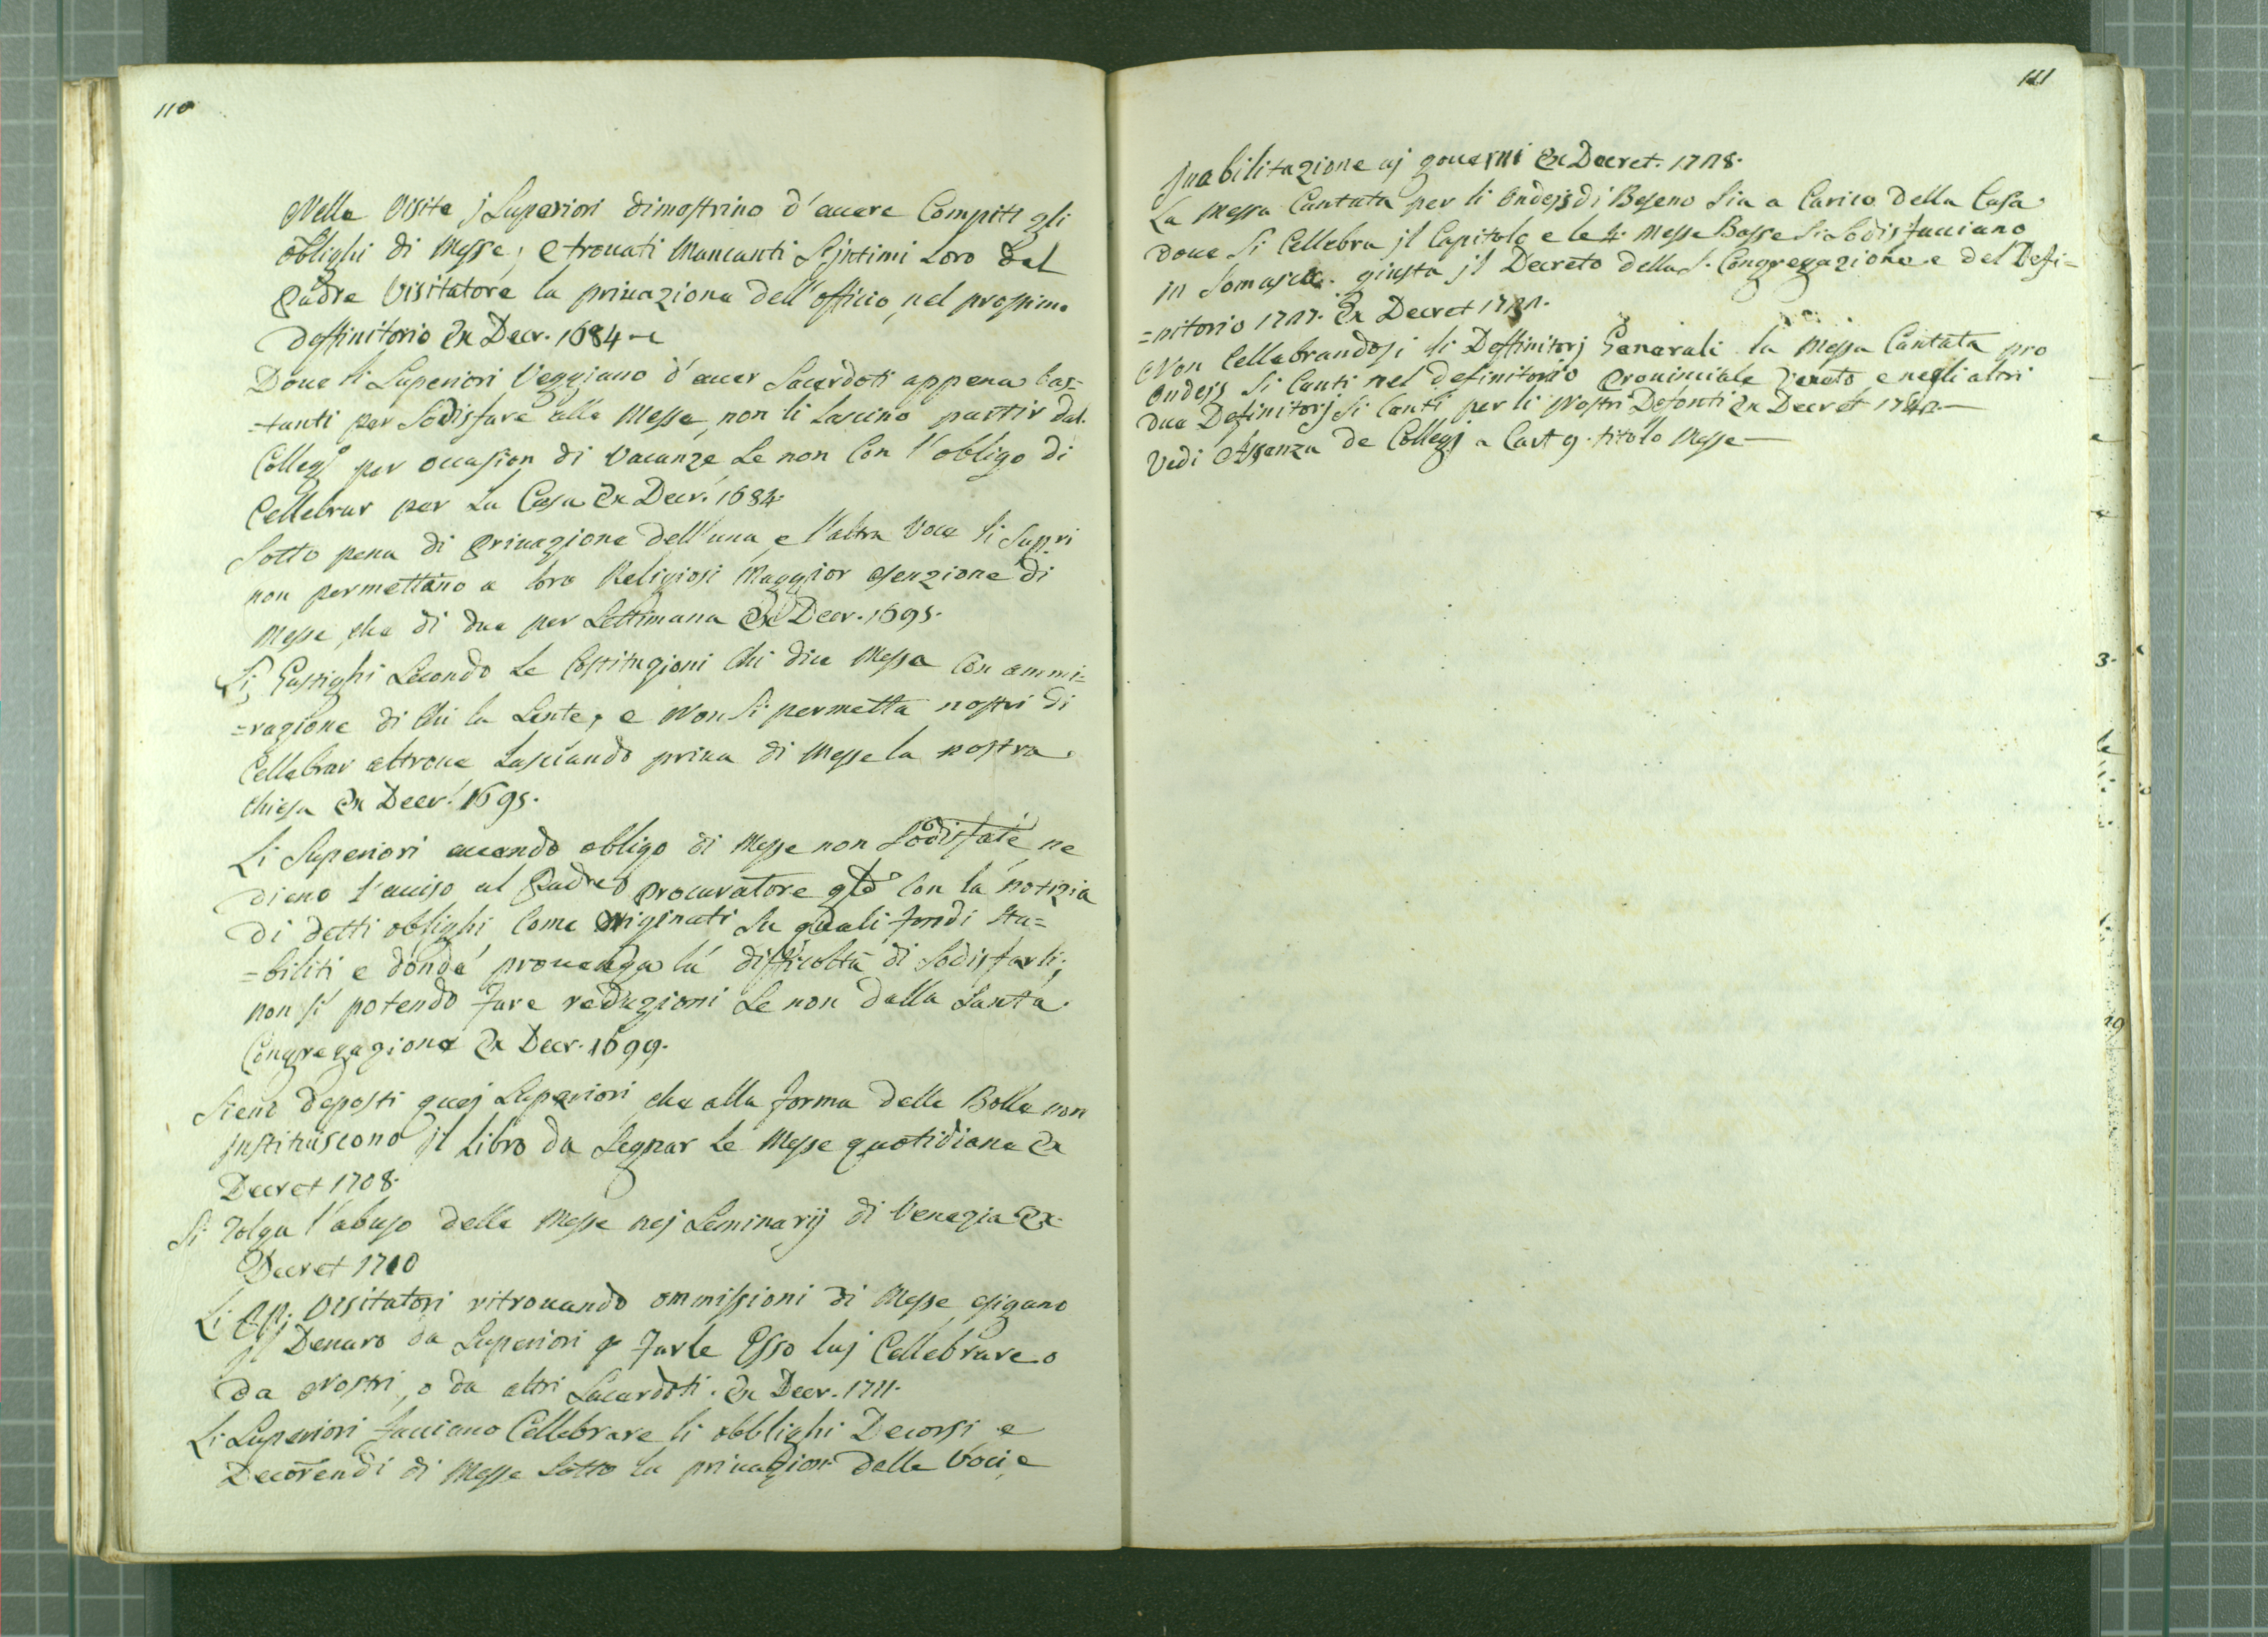 110
Nelle Visite j Superiori dimostrino d'auere Compiti gli
oblighi di Messe, e trouati Mancanti S'jntimi Loro dal
Padre Visitatore la priuazione dell'officio, nel prossimo
deffinitorio Ex Decr. 1684
Doue li Superiori Veggiano d'auer Sacerdoti appena bas=
=tanti per Sodisfare alle Messe, non li Lascino partir dal
Collegº per occasion di Vacanze Se non Con l'obligo di
Cellebrar per La Casa Ex Decr. 1684
Sotto pena di Priuazione dell'una e l'altra Voce li Suppri
non permettano a loro Religiosi Maggior esenzione di
Messe, che di due per Settimana Ex Decr. 1695.
Si Gastighi Secondo Le Costituzioni Chi dice Messa Con ammi=
=razione di Chi la Sente, e Non Si permetta nostri di
Cellebrar altroue Lasciando priua di Messe la nostra
chiesa Ex Decr. 1695.
Li Superiori auendo obligo di Messe non Sodisfate, ne
dieno l'auiso al Padre Procuratore glẽ Con la notizia
di detti oblighi Come Originati Su quali fondi Sta=
=biliti e donde prouenga la difficoltà di Sodisfarli,
non si potendo fare reduzioni Se non dalla Santa
Congregazione Ex Decr. 1699.
Siene deposti quej Superiori che alla forma delle Bolle non
jnstituiscono jl Libro da Segnar Le Messe quotidiane Ex
Decret 1708.
Si Tolga l'abuso delle Messe nej Seminarij di Venezia Ex
Decret 1710
Li PP. Visitatori ritrouando ommissioni di Messe esigano
jl Denaro da Superiori p farle Esso luj Cellebrare o
da Nostri, o da altri Sacerdoti. Ex Decr. 1711.
Li Superiori facciano Cellebrare li obblighi Decorsi e
Decorendi di Messe Sotto la priuazion delle Voci, e
111
jnabilitazione aj gouerni Ex Decret. 1718.
La Messa Cantata per li Ondejs di Beseno Sia a Carico della Casa
doue Si Cellebra jl Capitolo e le 4. Messe Basse Si Sodisfacciano
in Somasca. giusta jl Decreto della S. Congregazione e del Defi=
=nitorio 1717. Ex Decret
Non Cellebrandosi li Deffinitorj Generali la Messa Cantata pro
Ondejs Si Canti nel definitorio Prouinciale Veneto, e negli altri
due Definitorj Si Canti per li Nostri Defonti Ex Decret
Vedi Assenza de Collegj a Cart 9. titolo Messe